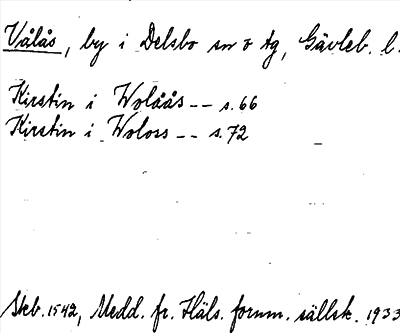 Vålås, by i Delsbo sn o tg, Gävleb. l.
Kirstin i Wolåås -- s. 66
Kirstin i Woloss -- s. 72
Skb. 1542, Medd. fr. Häls. fornm. sällsk. 1933